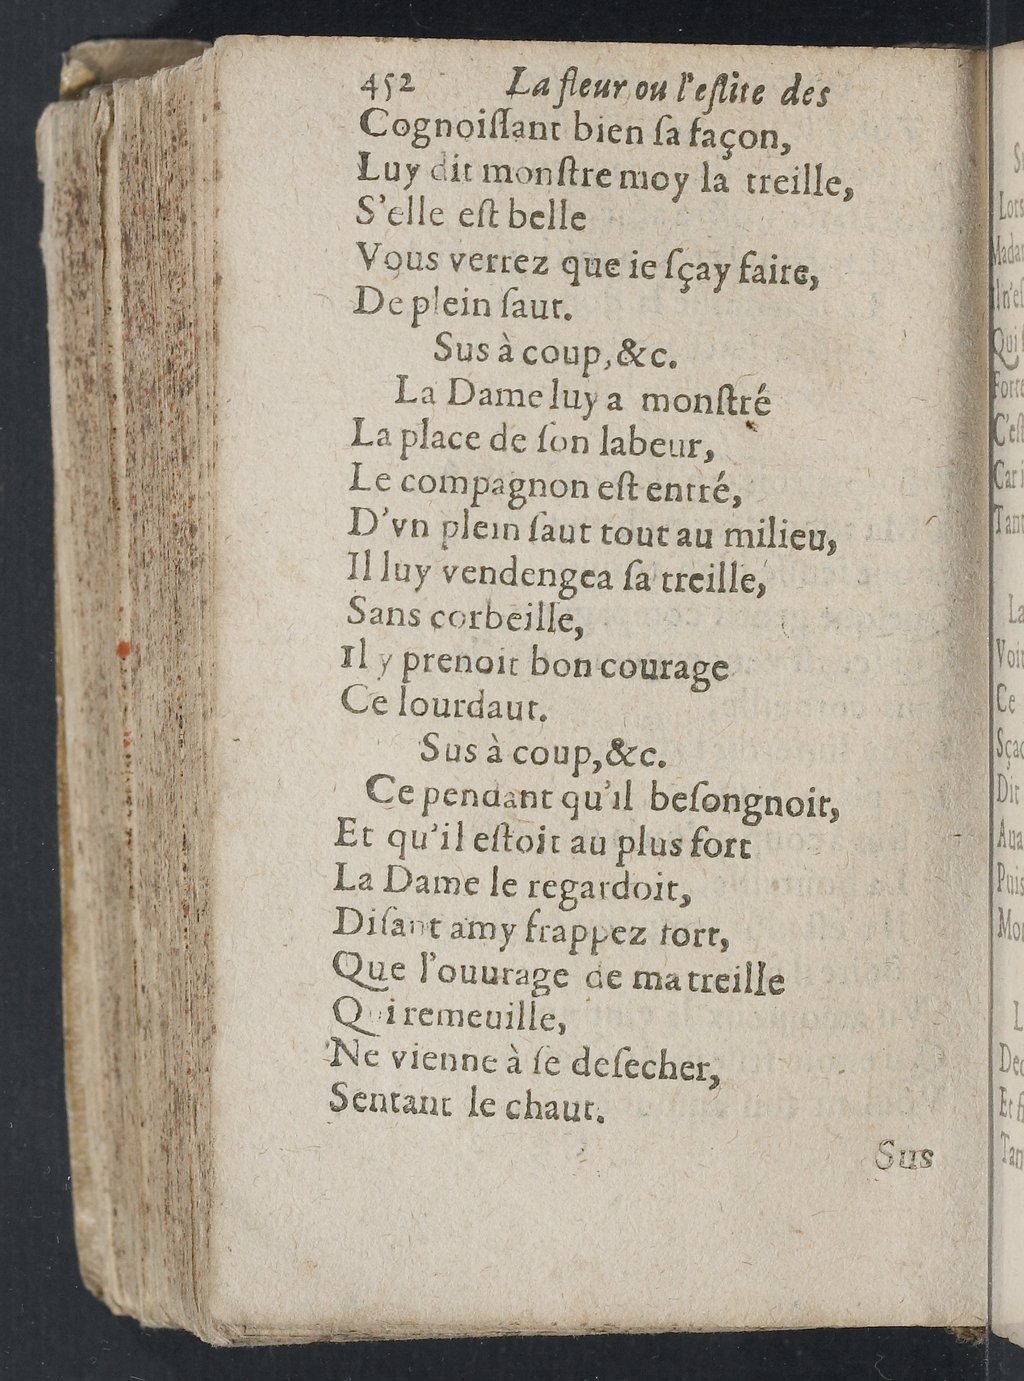 452 La fleur ou l'eslite des
Cognoiſſant bien ſa façon,
Luy dit monſtre moy la treille,
S'elle eſt belle
Vous verrez que ie ſçay faire,
De plein ſaut.
Sus à coup, &c.
La Dame luy a monſtré
La place de ſon labeur,
Le compagnon eſt entré,
D'vn plein ſaut tout au milieu,
Il luy vendengea ſa treille,
Sans corbeille,
Il y prenoit bon courage
Ce lourdaut.
Sus à coup, &c.
Ce pendant qu'il beſongnoit,
Et qu'il eſtoit au plus fort
La Dame le regardoit,
Diſant amy frappez fort,
Que l'ouurage de ma treille
Qui remeuille,
Ne vienne à ſe deſecher,
Sentant le chaut.
Sus
Lors
Qui
Car
La
Voir
Ce
Dit
Puis
L
Et